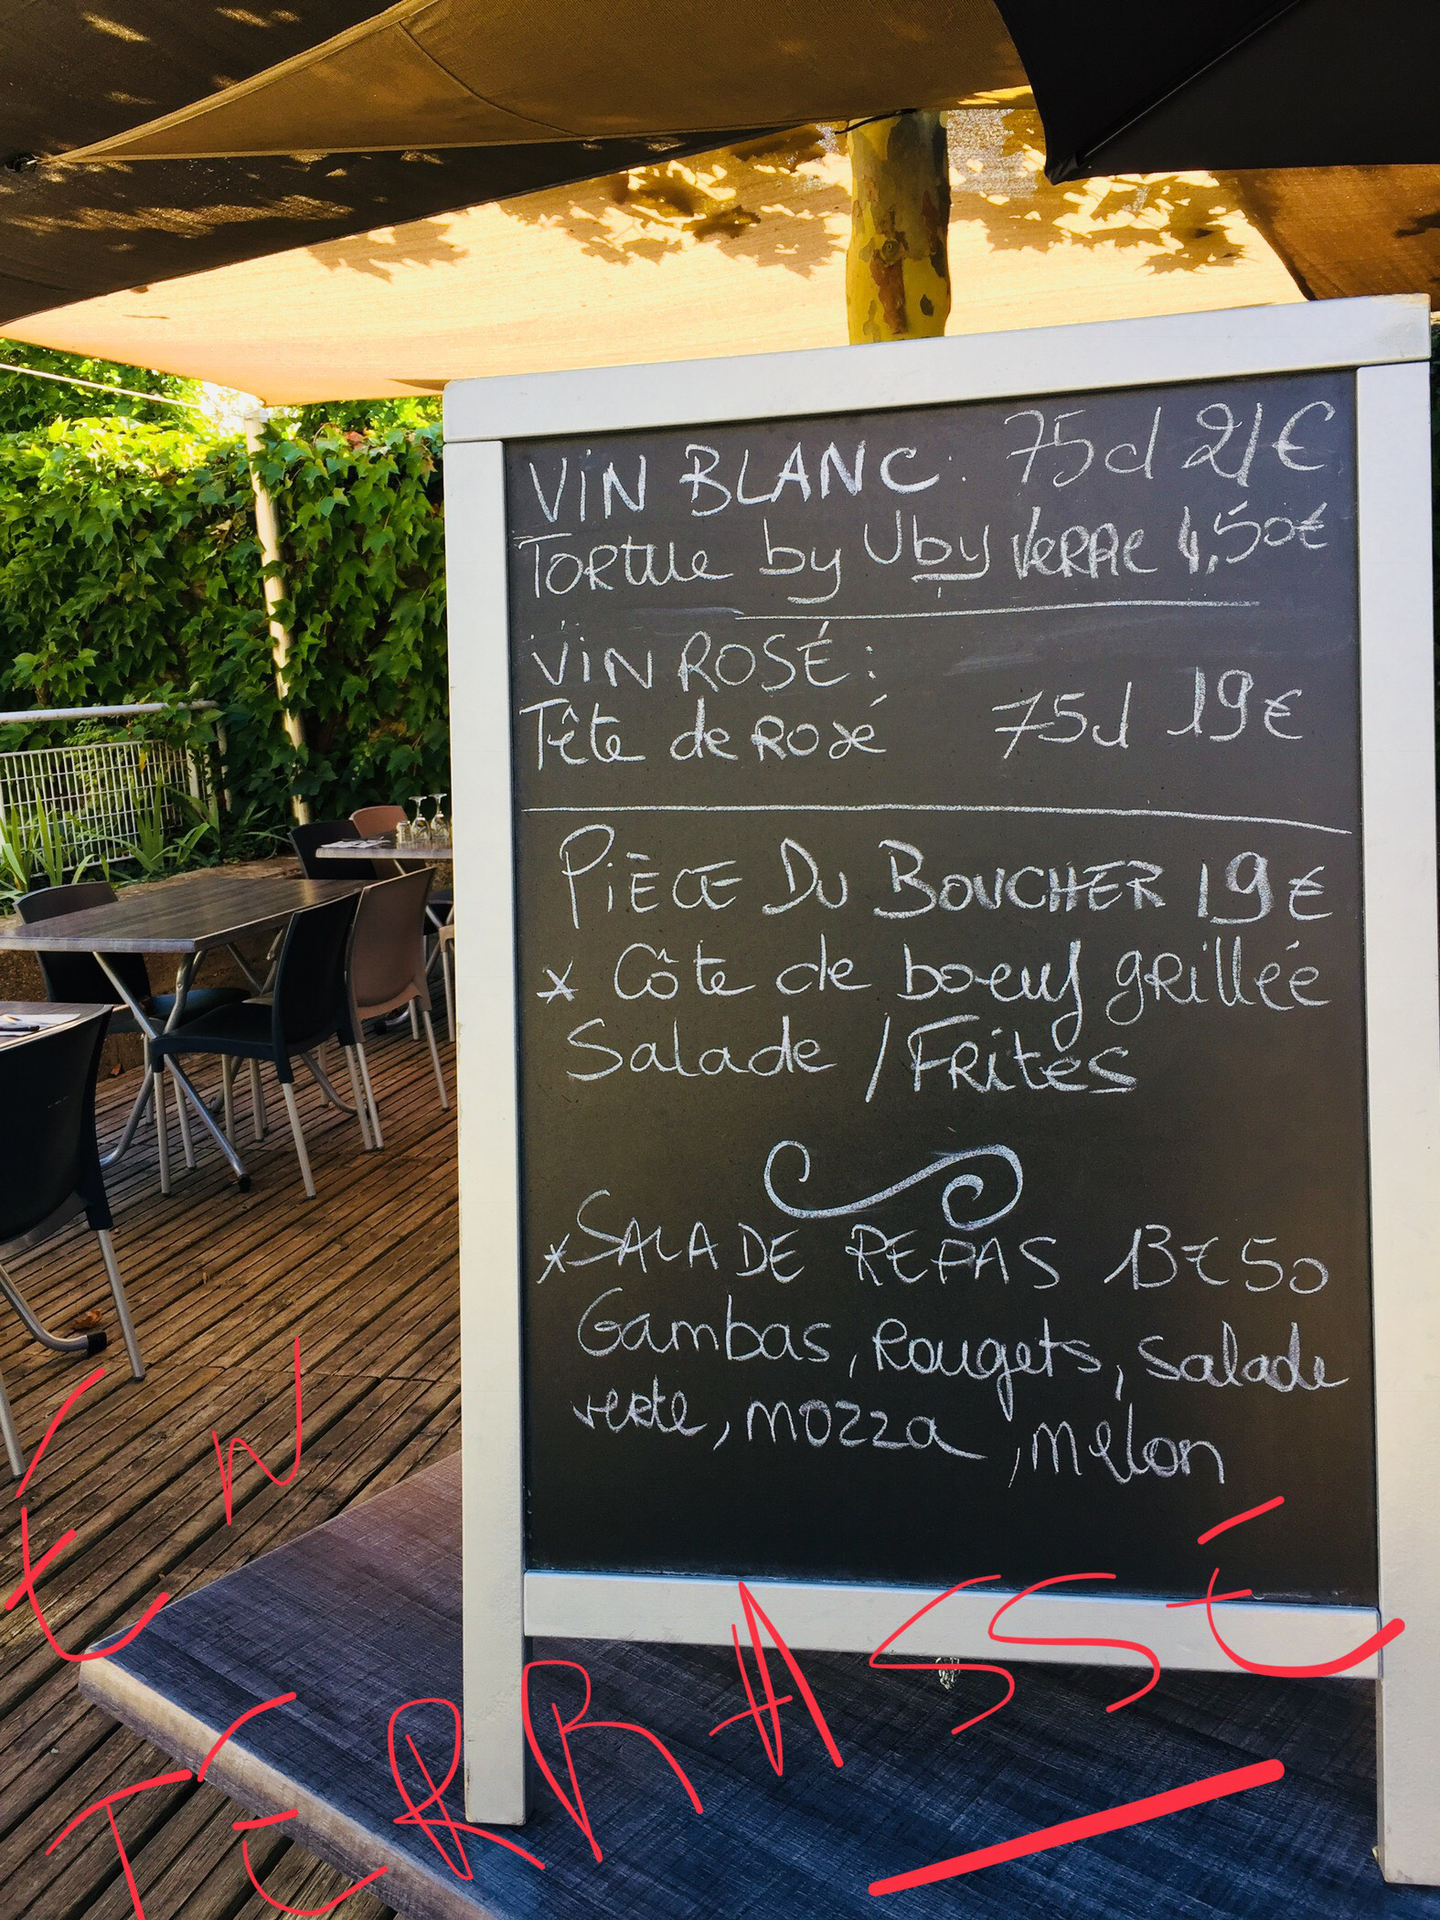 VIN BLANC: 75cl 21€
Tortue by Uby Verre 4,50€
VIN ROSÉ:
Tête de Rosé 75cl 19€
PIÈCE DU BOUCHER 19€
* Côte de boeuf grillée
Salade / Frites
*SALADE REPAS 13€50
Gambas, Rougets, Salade
verte, mozza, melon
EN
TERRASSE